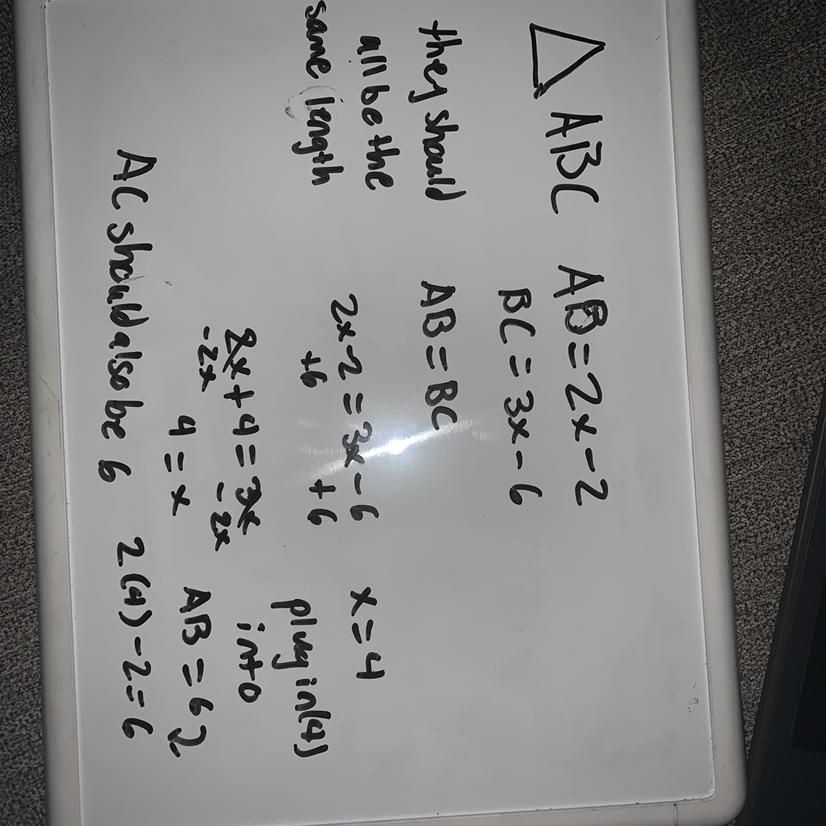 △ ABC AB=2x-2
BC=3x-6
they should
all be the
same length
AB=BC
2x-2=3x-6
+6 +6
2x+4=3x
-2x -2x
4=x
x=4
plug in(4)
into
AB=62
2(4)-2=6
AC should also be 6